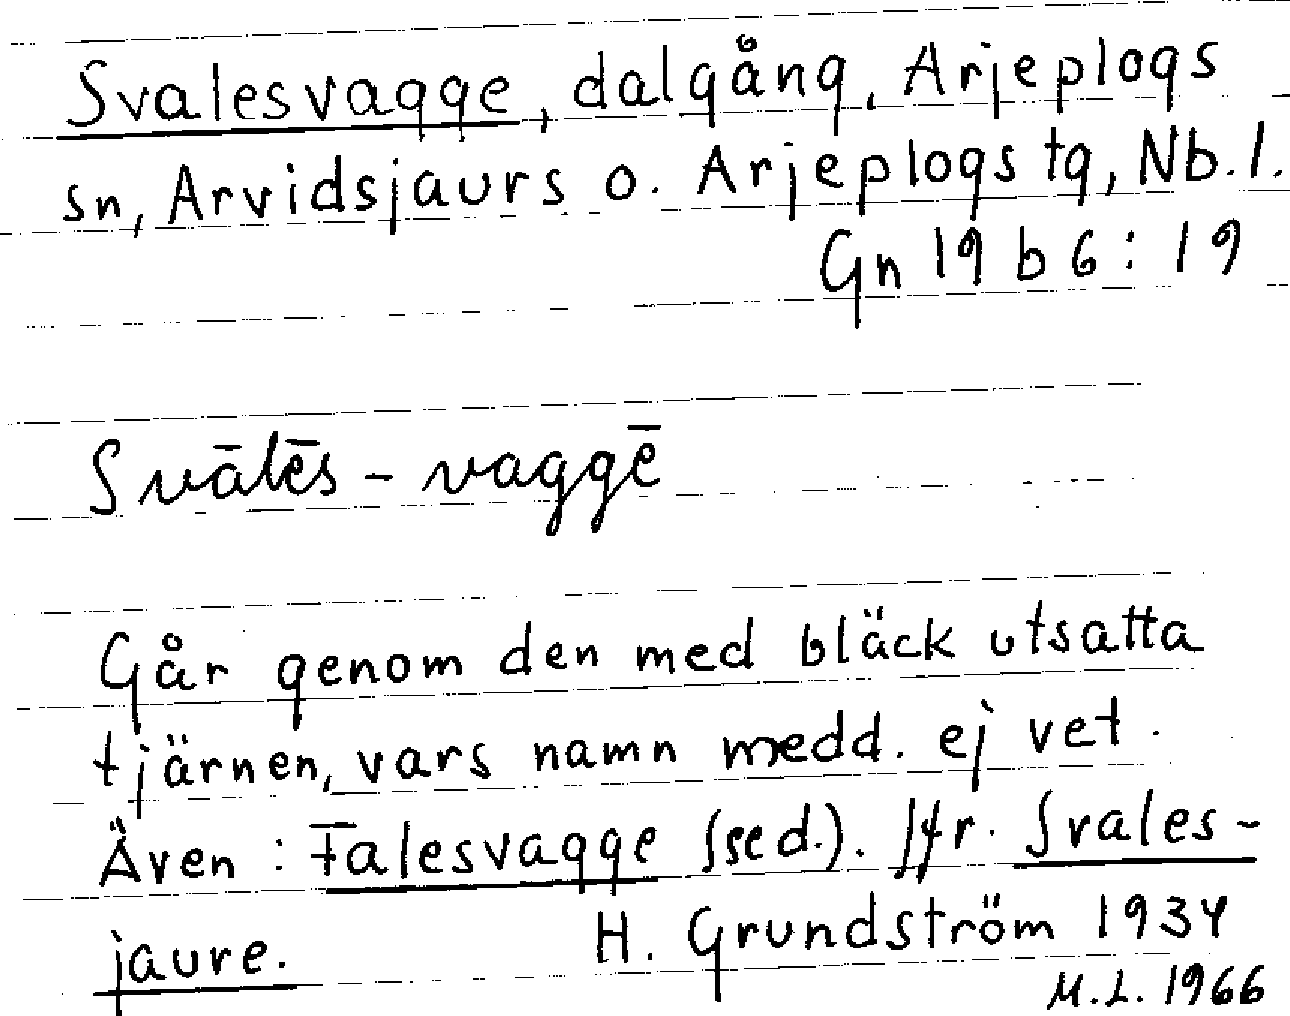 Svalesvagge, dalgång, Arjeplogs
sn, Arvidsjaurs o. Arjeplogs tg, Nb. l.
Gn 19 b 6 : 19
Svālēs-vaggē
Går genom den med bläck utsatta
tjärnen, vars namn medd. ej vet.
Även : Falesvagge (se d.). Jfr. Svales-
jaure. H. Grundström 1934
M.L. 1966